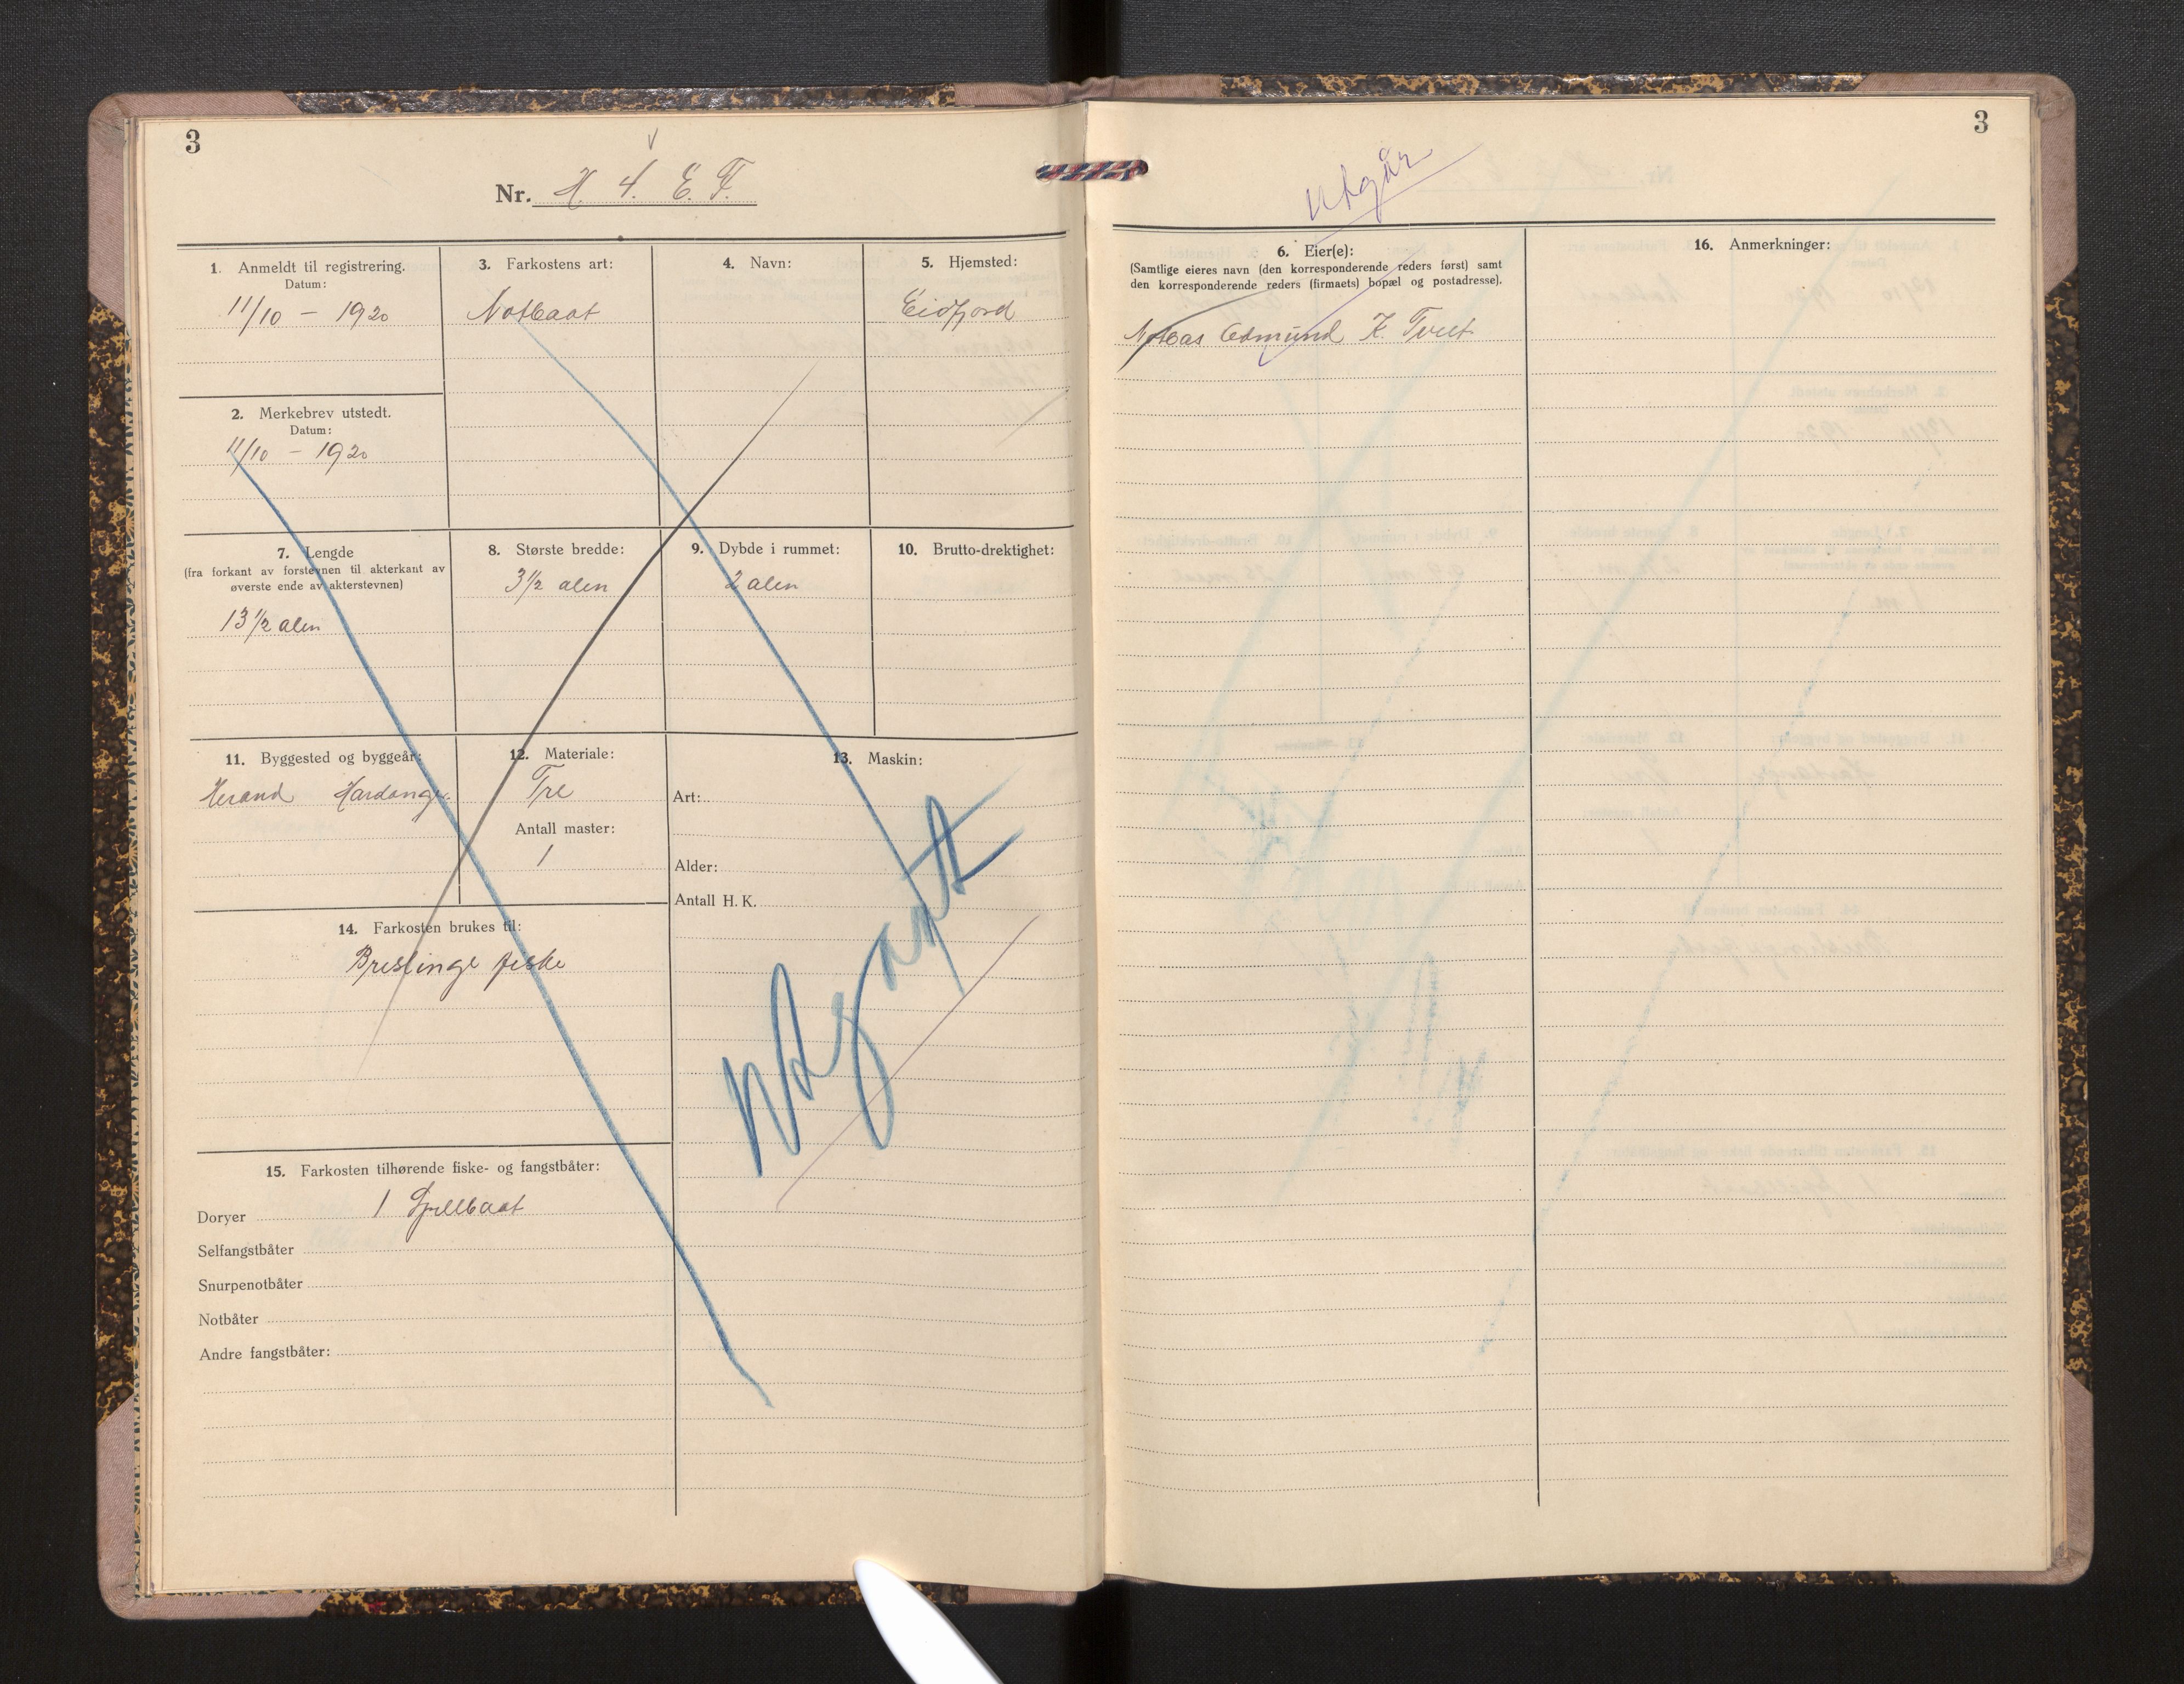 3
Nr. H. 4. E. F.
1. Anmeldt til registrering.
Datum:
11/10 - 1920
2. Merkebrev utstedt.
Datum:
11/10 - 1920
3. Farkostens art:
Notbaat
4. Navn:
5. Hjemsted:
Eidfjord
7. Lengde
(fra forkant av forstevnen til akterkant av
øverste ende av akterstevnen)
13 1/2 alen
8. Største bredde:
3 1/2 alen
9. Dybde i rummet:
2 alen
10. Brutto-drektighet:
11. Byggested og byggeår:
Herand Hardanger.
12. Materiale:
Tre
Antall master:
1
13. Maskin:
Art:
Alder:
Antall H. K.
Utgaatt
14. Farkosten brukes til:
Brislinge fiske
15. Farkosten tilhørende fiske- og fangstbåter:
Doryer 1 Spillbaat
Selfangstbåter
Snurpenotbåter
Notbåter
Andre fangstbåter:
3
Utgår
6. Eier(e):
(Samtlige eieres navn (den korresponderende reders først) samt
den korresponderende reders (firmaets) bopæl og postadresse).
Notbas Edmund K. Tveit
16. Anmerkninger: